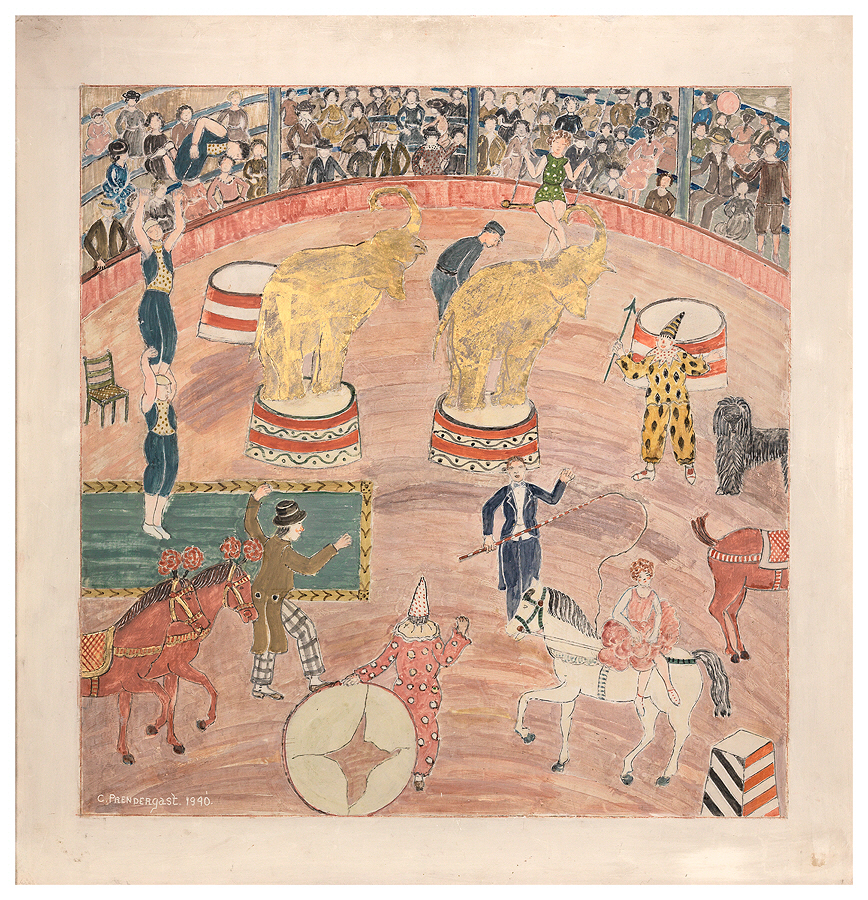 C. PRENDERgAST. 1940.